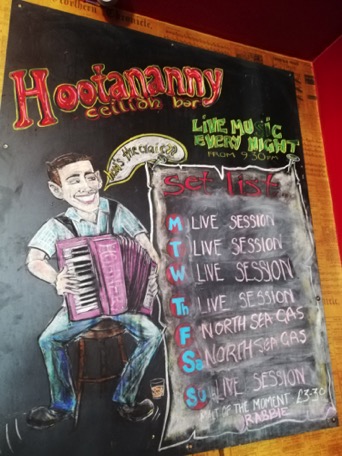 Hootananny
ceilidh bar
LIVE MUSIC
EVERY NIGHT
FROM 9 30PM
Set list
M LIVE SESSION
T LIVE SESSION
W LIVE SESSION
Th LIVE SESSION
F NORTH SEA GAS
Sa NORTH SEA GAS
Su LIVE SESSION
OF THE MOMENT £3.30
RABBIE